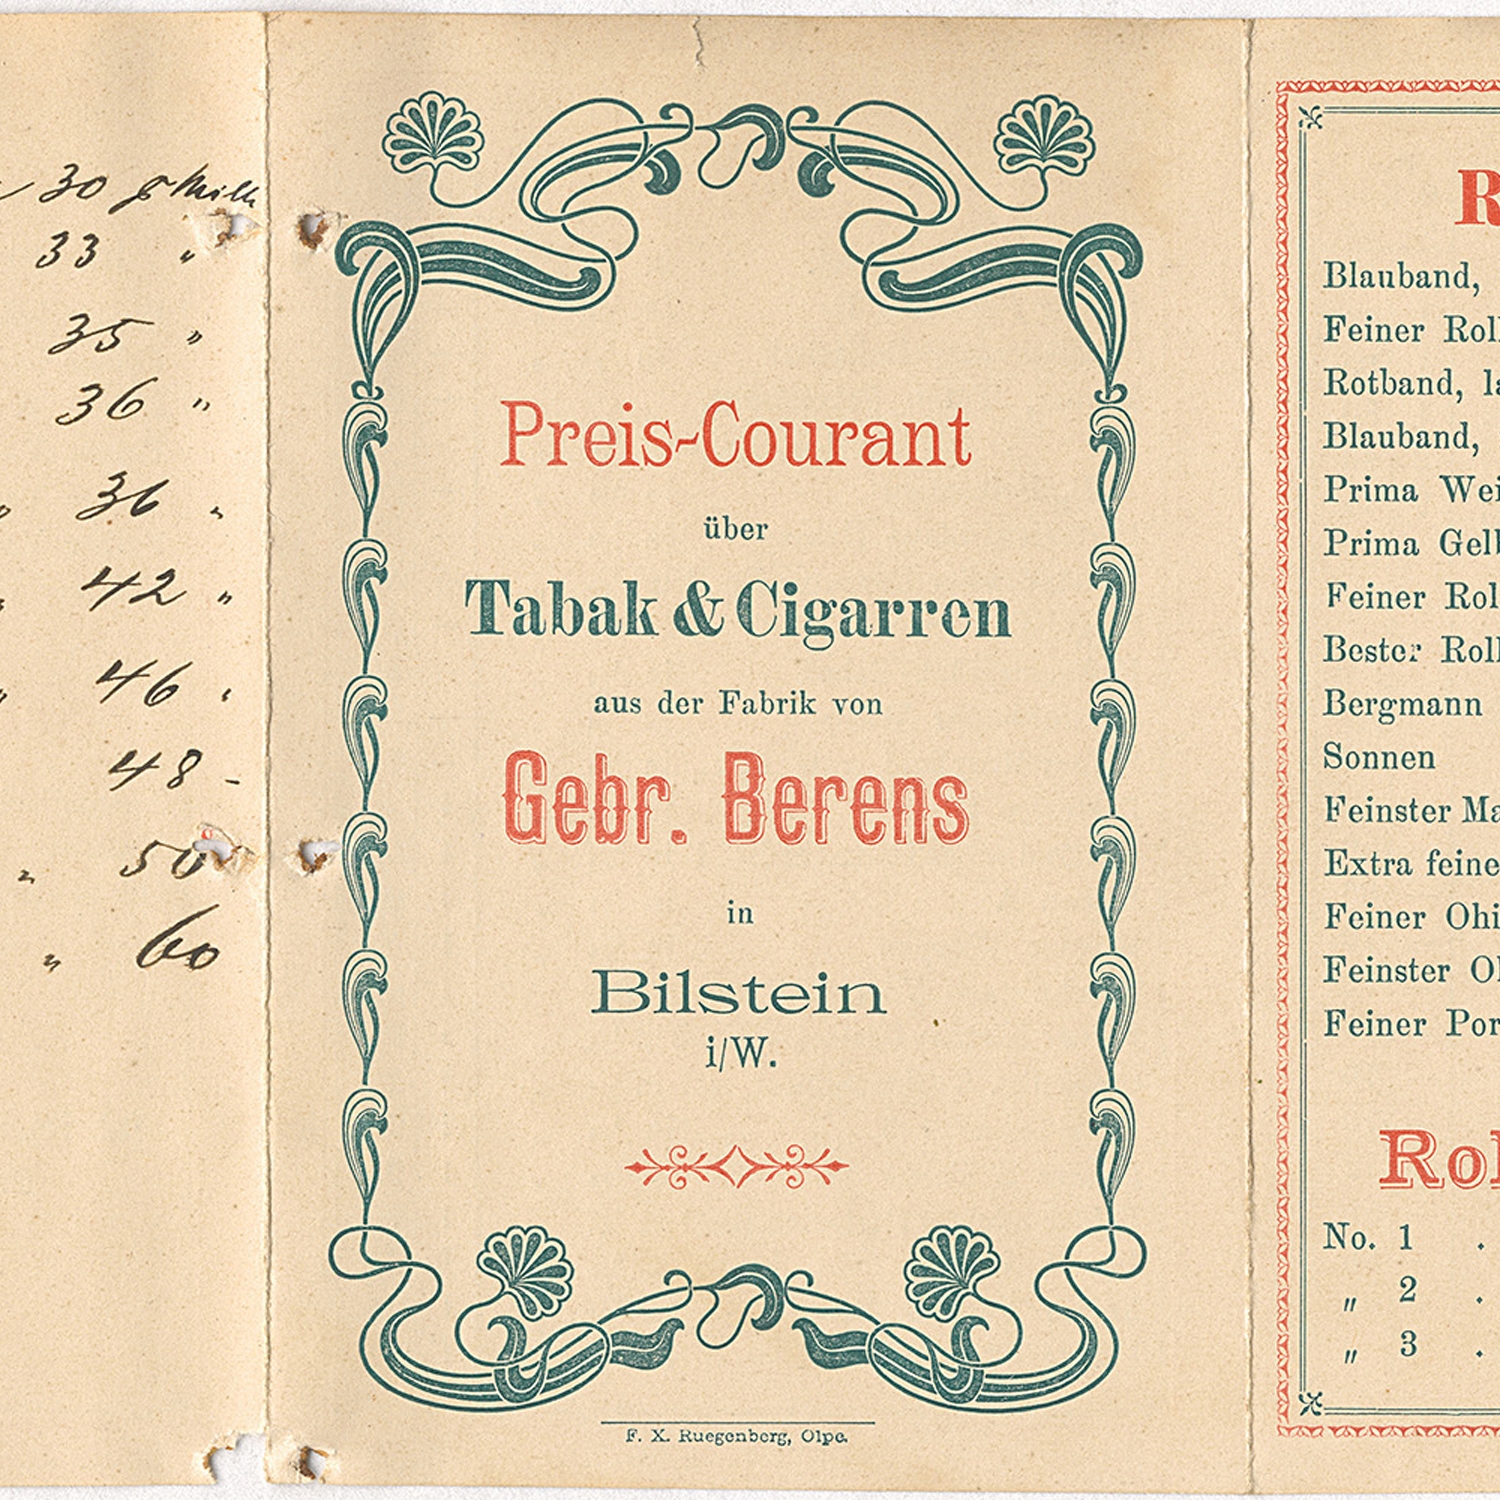 30 p Mille
33 "
35 "
36 "
" 36 "
" 42 "
" 46 "
48 -
" 50
" 60
Preis-Courant
über
Tabak & Cigarren
aus der Fabrik von
Gebr. Berens
in
Bilstein
i/W.
F. X. Ruegenberg, Olpe.
R
Blauband,
Feiner Rol
Rotband, la
Blauband,
Prima Wei
Prima Gelb
Feiner Rol
Bester Roll
Bergmann
Sonnen
Feinster Ma
Extra feine
Feiner Ohi
Feinster Oh
Feiner Por
Rol
No. 1 .
" 2 .
" 3 .